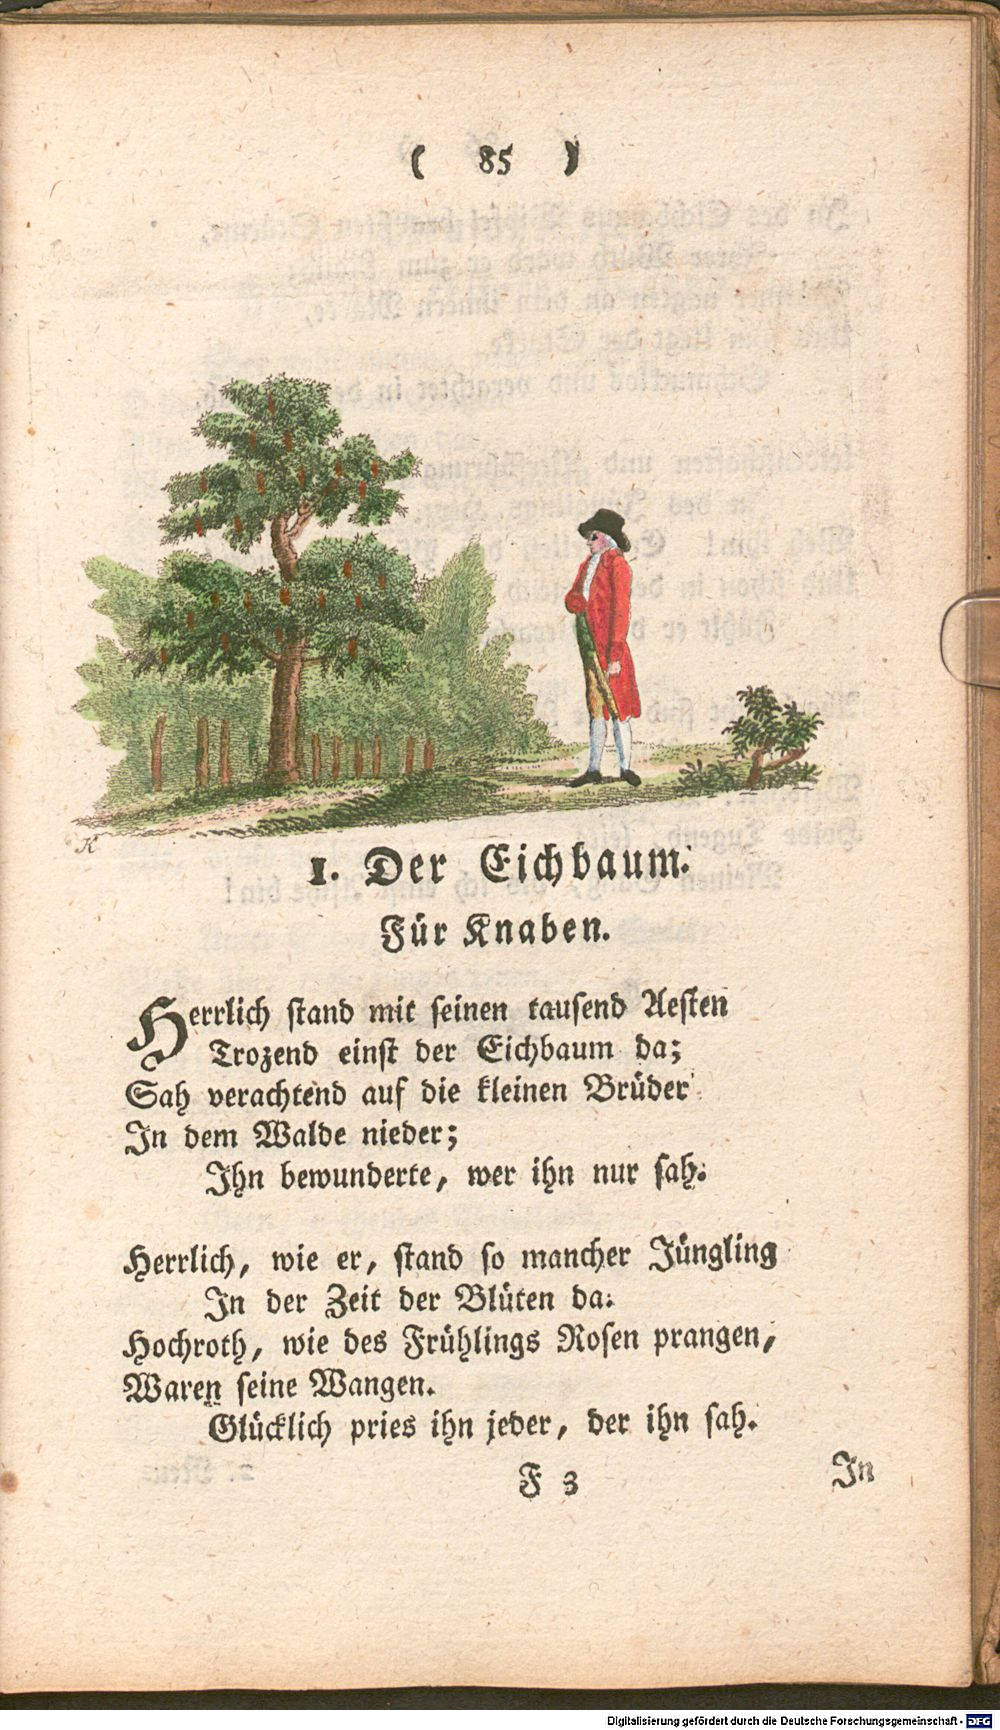 ( 85 )
K
1. Der Eichbaum.
Für Knaben.
Herrlich stand mit seinen tausend Aesten
Trozend einst der Eichbaum da;
Sah verachtend auf die kleinen Brüder
In dem Walde nieder;
Ihn bewunderte, wer ihn nur sah.
Herrlich, wie er, stand so mancher Jüngling
In der Zeit der Blüten da.
Hochroth, wie des Frühlings Rosen prangen,
Waren seine Wangen.
Glücklich pries ihn jeder, der ihn sah.
F 3
In
Digitalisierung gefördert durch die Deutsche Forschungsgemeinschaft - DFG